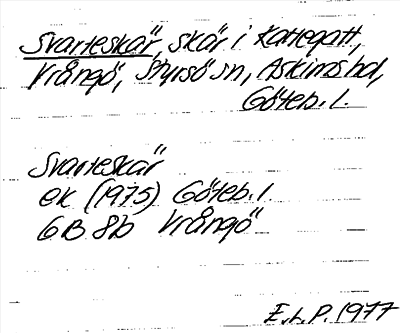 Svarteskär, skär i Kattegatt,
Vrångö, Styrsö sn, Askims hd,
Göteb. l.
Svarteskär
ek (1975) Göteb. l.
6B 8b Vrångö
E.L.P. 1977